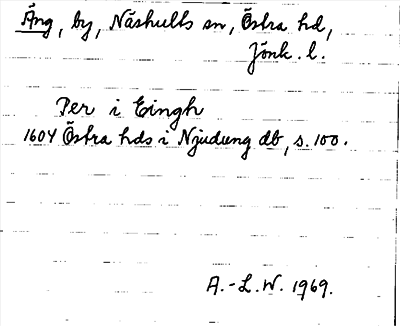 Äng, by, Näshults sn, Östra hd,
Jönk. l.
Per i Eingh
1604 Östra hds i Njudung db, s. 100.
A.-L. W. 1969.